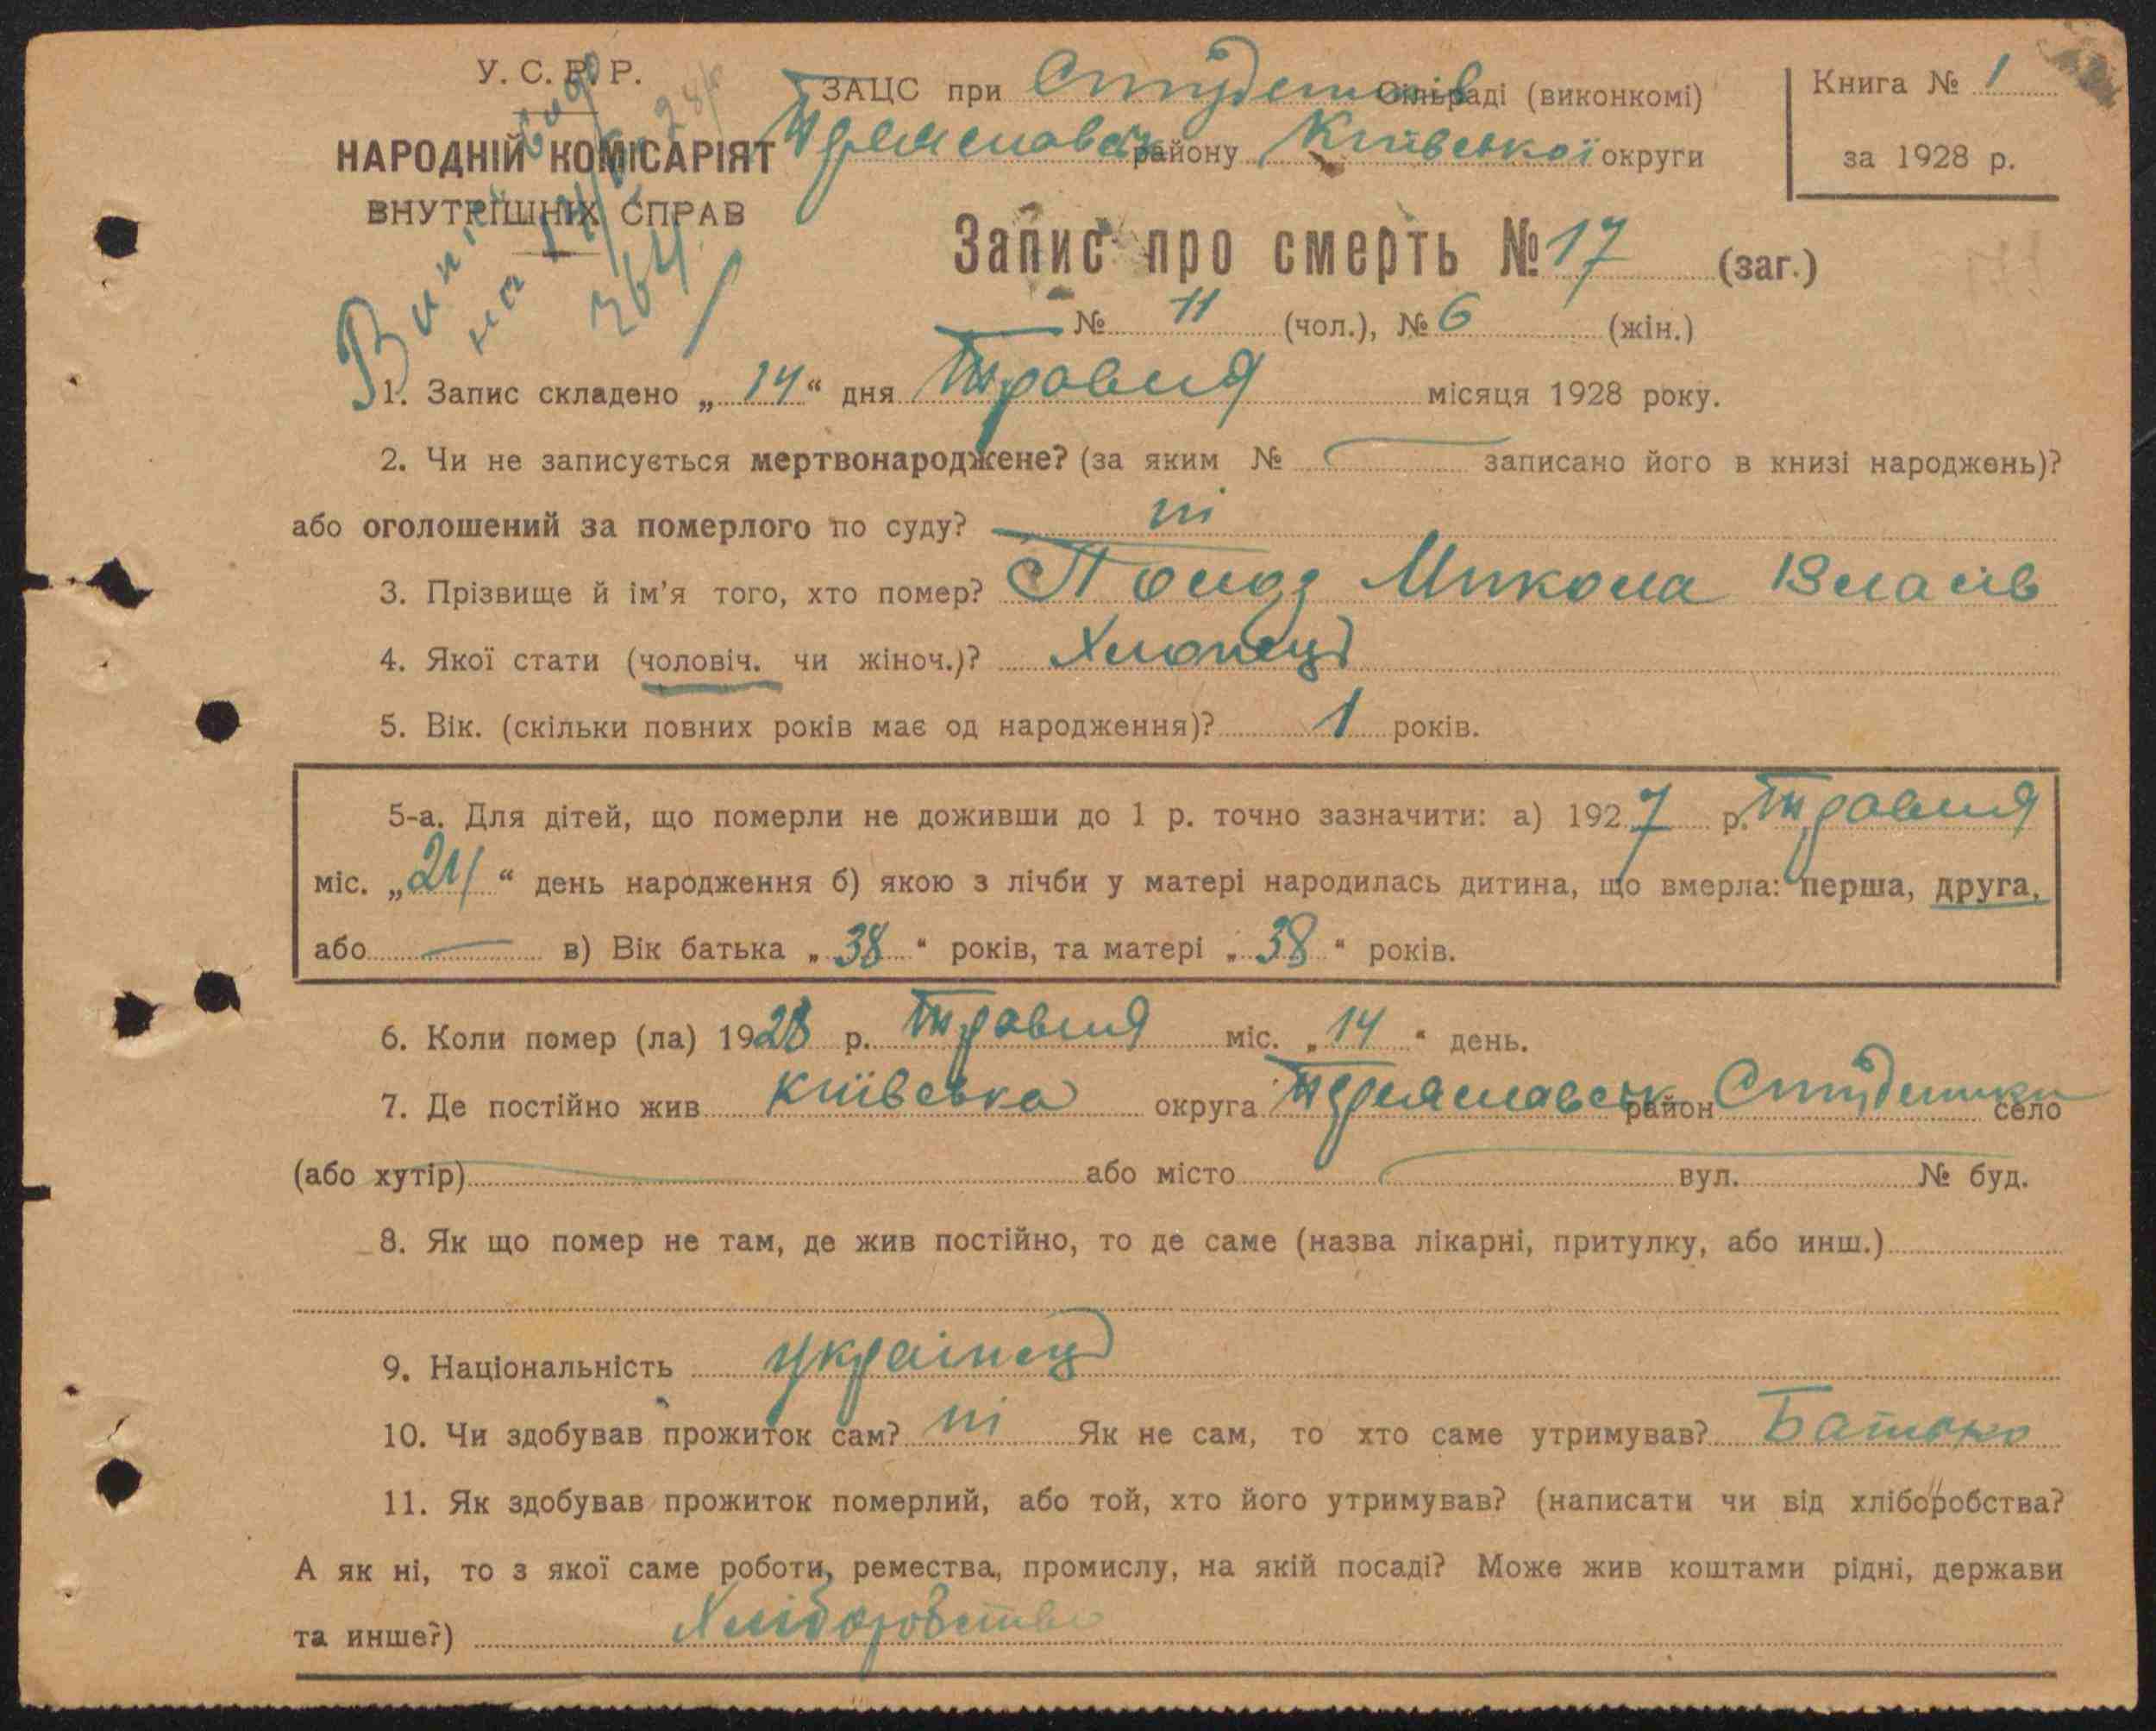 У. С. Р. Р.
НАРОДНІЙ КОМІСАРІЯТ
ВНУТРІШНІХ СПРАВ
ЗАЦС при Студеників сільраді (виконкомі)
району Київської округи
Книга № 1
за 1928 р.
Запис про смерть № 17 (заг.)
№ 11 (чол.), № 6 (жін.)
1. Запис складено „14“ дня Травня місяця 1928 року.
2. Чи не записується мертвонароджене? (за яким № записано його в книзі народжень)?
або оголошений за померлого по суду? ні
3. Прізвище й ім'я того, хто помер? Микола Власів
4. Якої стати (чоловіч. чи жіноч.)? Хлопець
5. Вік. (скільки повних років має од народження)? 1 років.
5-а. Для дітей, що померли не доживши до 1 р. точно зазначити: а) 1927 р. Травня
міс. „21“ день народження б) якою з лічби у матері народилась дитина, що вмерла: перша, друга,
або — в) Вік батька „38“ років, та матері „38“ років.
6. Коли помер (ла) 1928 р. Травня міс. „14“ день.
7. Де постійно жив Київська округа Переяславськ район Студеники село
(або хутір) або місто вул. № буд.
8. Як що помер не там, де жив постійно, то де саме (назва лікарні, притулку, або инш.)
9. Національність українець
10. Чи здобував прожиток сам? ні Як не сам, то хто саме утримував? Батько
11. Як здобував прожиток померлий, або той, хто його утримував? (написати чи від хліборобства?
А як ні, то з якої саме роботи, ремества, промислу, на якій посаді? Може жив коштами рідні, держави
та инше?) Хліборобство